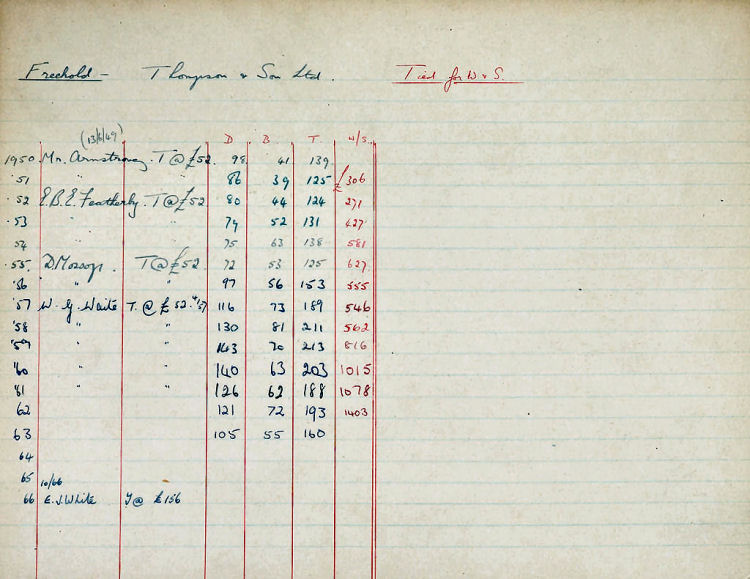 Freehold - Thompson & Son Ltd. Tied for W & S.
(13/6/49)
D B T W/S.
1950 Mr. Armstrong. T @ £52. 98 41 139
'51 " " 86 39 125 £306
'52 E.B.E. Featherby. T @ £52 80 44 124 271
'53 79 52 131 427
54 75 63 138 581
'55. D. Mossop. T @ £52 72 53 125 627
'56 " " 97 56 153 555
'57 W. G. Waite T. @ £52. 116 73 189 546
'58 " " 130 81 211 562
'59 " " 143 70 213 816
'60 " " 140 63 203 1015
'61 126 62 188 1078
62 121 72 193 1403
63 105 55 160
64
65 10/66
66 E. J. White T @ £156